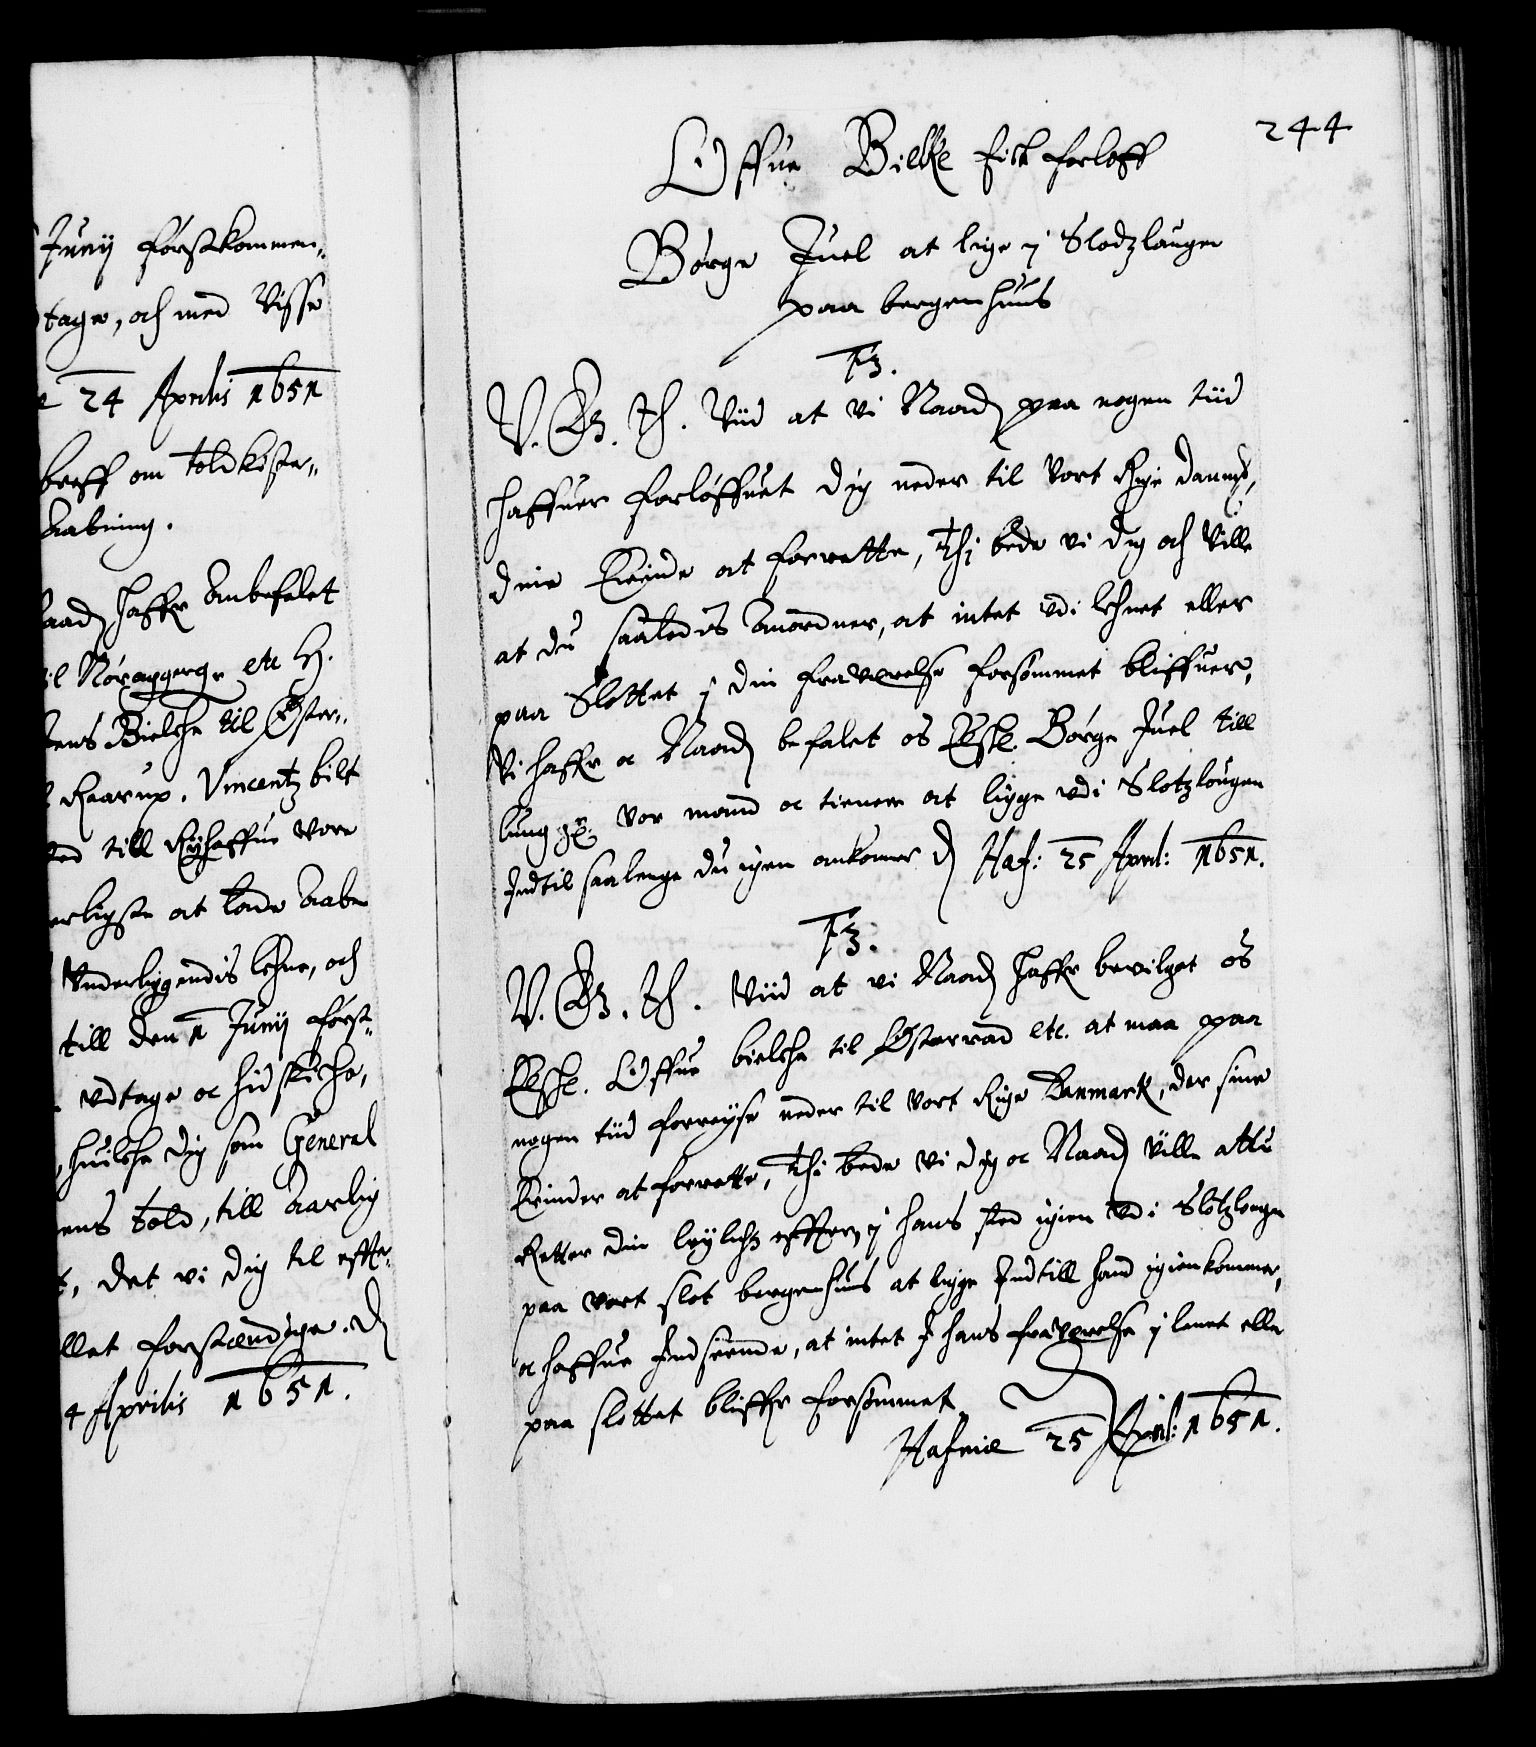 Junij førstkommen-
tage, och med Visse
24 Aprilis 1651
breff om toldkiste-
Aabning.
naad haffr Anbefalet
til Nøragger etc H.
Jens Bielche til Øster-
Raarup. Vincentz bilt
till Nÿhaffue vore
erligste at lade Aabne
Vnderliggendis lehne, och
till den 1 Junij først-
vdtage oc hid skiche,
huilche dig som General
ens told, till Aarlig
t, det vi dig til effte-
llet forstændige. D
4 Aprilis 1651.
244
Offue Bielke fick forloff
Børge Juel at lige j Slodzlaugen
paa bergenhuus
F3.
V. G. T. Viid at vi Naad paa nogen tiid
haffuer forløffuet dig neder til Vort Rige Danmk,
dine Erinde at forrette, Thj bede vi dig och Ville
at du saaledis Anordner, at intet vdi lehnet eller
paa Slottet j din fraverelse forsømmet bliffuer,
Vi haffr oc Naad befalet os Elskl. Børge Juel till
lung gr. vor mand oc tienere at ligge vdi Slotzlougen
Indtil saalenge du igen ankomer D Haf: 25 April: 1651.
F3.
V. G. T. Viid at vi Naad haffr bevilget os
Elskl. Offue bielche til Østerraad etc. at maa paa
nogen tiid forreyse neder til vort Rige Danmark, der sine
Erinder at forrette, Thi bede vi dig oc Naad Ville attu
Retter din leÿlighed effter, j hans sted igien vdi Slotzlougen
paa vort slot bergenhuus at ligge Indtill hand igienkommer,
oc haffue Indseende, at intet I hans fraverelse j lenet eller
paa slottet bliffr forsømmet
Hafniæ 25 April: 1651.